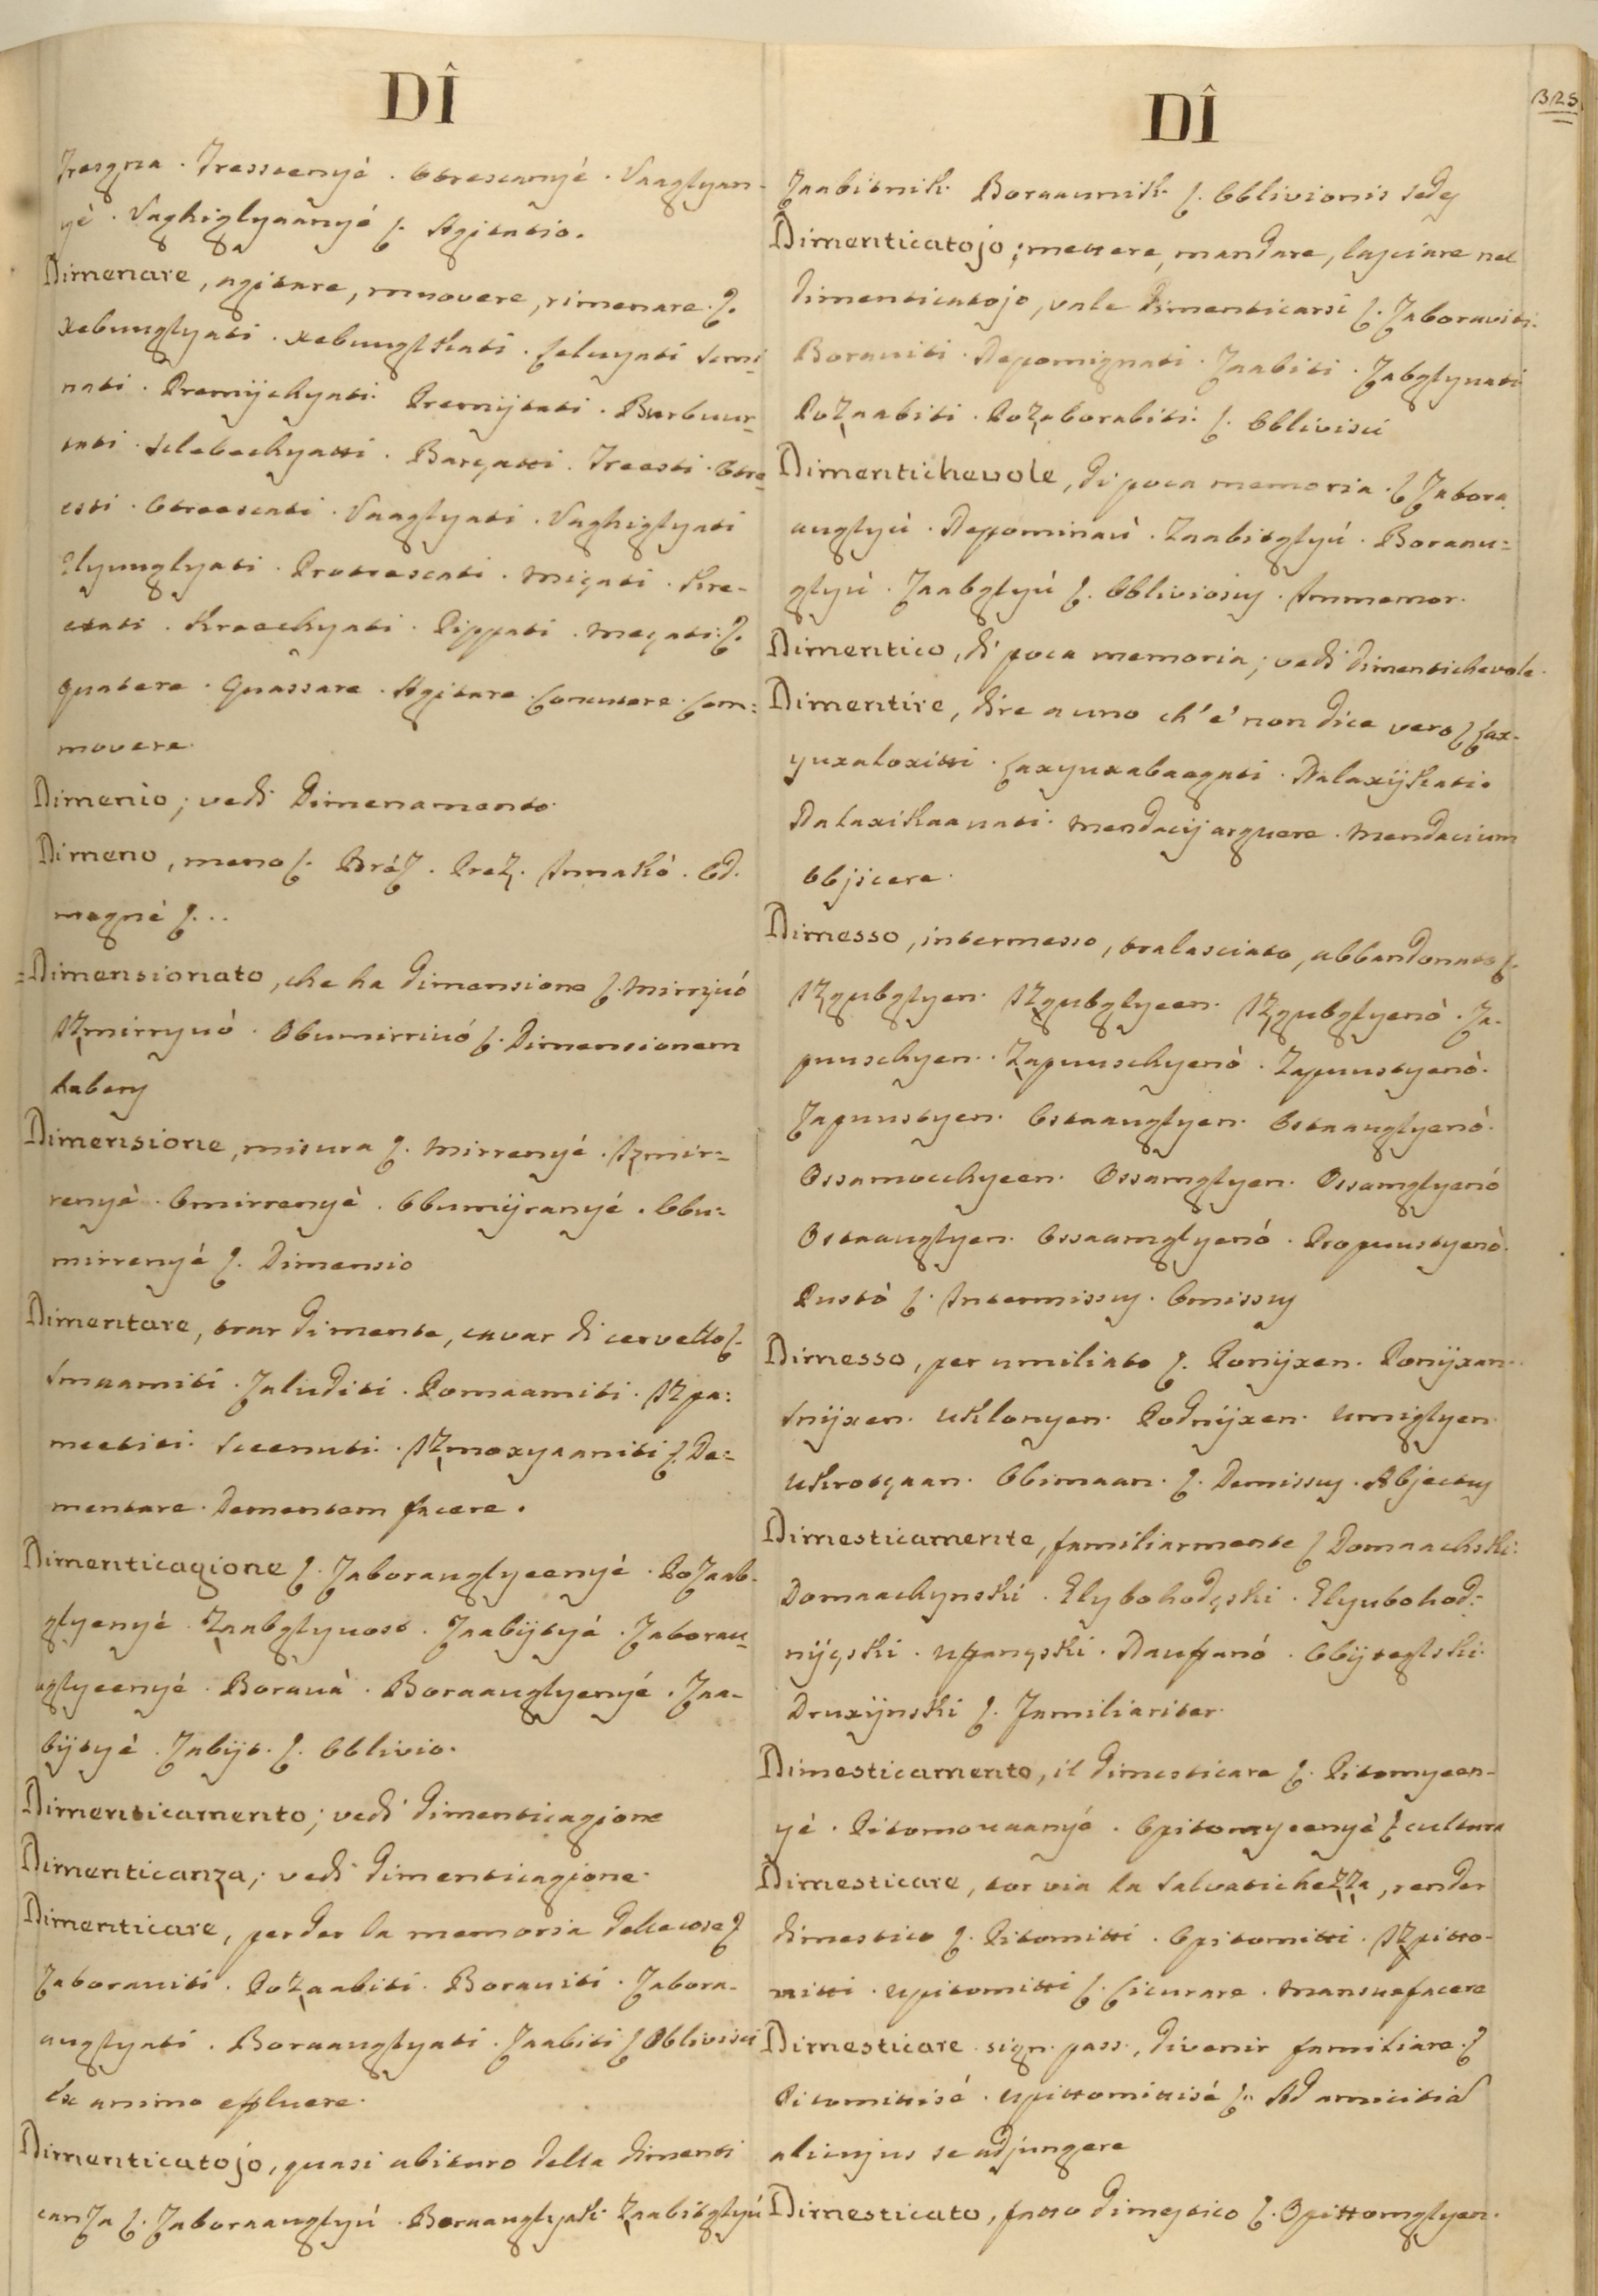 DÎ
Tresgna. Tresseenyé. Otrescanyé. Vaaglyan-
yé. Vaghiglyaanyé ſ. Agitatio.
Dimenare, agitare, muovere, rimenare. ſ.
xebunglyati. xebunglkati. Seluyati Semi-
nati. Premijchyati. Premijtati. Burbuur-
tati. Sclebechyatti. Barçatti. Treesti. Otre-
esti. Otreescati. Vaaglyati. Vaghiglyati
Elyunglyati. Protrescati. Miçati. Kre-
etati. Kreechyati. Pippati. Meçati. ſ.
Quatere. Quassare. Agitare. Concutere. Com=
movere.
Dimenio; vedi Dimenamento.
Dimeno, meno ſ. Bráz. Prez. Inmakó. Od.
magné ſ...
=Dimensionato, che ha dimensione ſ. Mirryuó
Izmirryuó. Obumirriuó ſ. Dimensionem
habens
Dimensione, misura ſ. Mirrenyé. Izmir=
renyé. Omirrenyé. Obumijranyé. Obu=
mirrenyé ſ. Dimensio
Dimentare, trar di mente, cavar di cervello ſ.
Smaamiti. Zaluditi. Pomaamiti. Izpa:
meetiti. Sceenuti. Izmoxyaaniti ſ. De=
mentare. Dementem facere.
Dimenticagione ſ. Zaborauglyeenyé. Pozaab-
glyenyé. Zaabglyuost. Zaabijtyé. Zaborau-
uglyeenyé. Borauà. Boraauglyenyé. Zaa-
bijtyé. Zabijt. ſ. Oblivio.
Dimenticamento; vedi dimenticagione
Dimenticanza; vedi dimenticagione.
Dimenticare, perder la memoria delle cose ſ
Zaborauiti. Pozaabiti. Borauiti. Zabora-
auglyati. Boraauglyati. Zaabiti ſ Oblivisci
Ex animo effluere.
Dimenticatojo, quasi abituro della dimenti
canza ſ. Zaboraauglyú. Boraauglyski Zaabitglyú
DÎ
325
Zaabitnik. Boraaunik ſ. Oblivionis sedes
Dimenticatojo; mettere, mandare, lasciare nel
dimenticatojo, vale dimenticarsi ſ. Zaborauiti.
Borauiti. Nepomignati. Zaabiti. Zabglyuati
Pozaabiti. Pozaborabiti. ſ. Oblivisci
Dimentichevole, di poca memoria. ſ Zabora
auglyú. Nepominaú. Zaabitglyú. Boraau=
glyú. Zaabglyú ſ. Obliviosus. Immemor.
Dimentico, di poca memoria; vedi dimentichevole.
Dimentire, dire a uno ch'e' non dice vero ſ Sax-
yuxaloxitti. Saxyuxabaegati. Nalaxijkati.
Nalaxikaauati. Mendacij arguere. Mendacium
Objicere.
Dimesso, intermesso, tralasciato, abbandonato ſ.
Izgubglyen. Izgubglyeen. Izgubglyenó. Za-
puuschyen. Zapuuschyenó. Zapuustyenó.
Zapuustyen. Ostaauglyen. Ostaauglyenó.
Ossamocchyeen. Ossamglyen. Ossamglyenó
Ostaauglyen. Ossaamglyenó. Propuustyenó.
Pustó ſ. Intermissus. Omissus
Dimesso, per umiliato ſ. Ponijxen. Ponijxan.
Snijxen. Uklonyen. Podnijxen. Umiglyen.
Ukrotçaan. Obimaan. ſ. Demissus. Abjectus
Dimesticamente, familiarmente ſ Domaachski.
Domaachynski. Elybohodçski. Elyubohod=
nijçski. Ufançski. Naufanó. Obijteglski.
Druxijnski ſ. Familiariter.
Dimesticamento, il dimesticare ſ. Pitomyeen-
yé. Pitomouaanyé. Opitomyeenyé ſ cultura
Dimesticare, tor via la salvatichezza, render
dimestico ſ. Pitomitti. Opitomitti. Izpitto-
mitti. Upitomitti ſ. Cicurare. Mansuefacere
Dimesticare sign. pass., divenir familiare. ſ
Pitomittisé. Upittomittisé ſ. Ad amicitia
alicujus se adjungere
Dimesticato, fatto dimestico ſ. Opittomglyen.